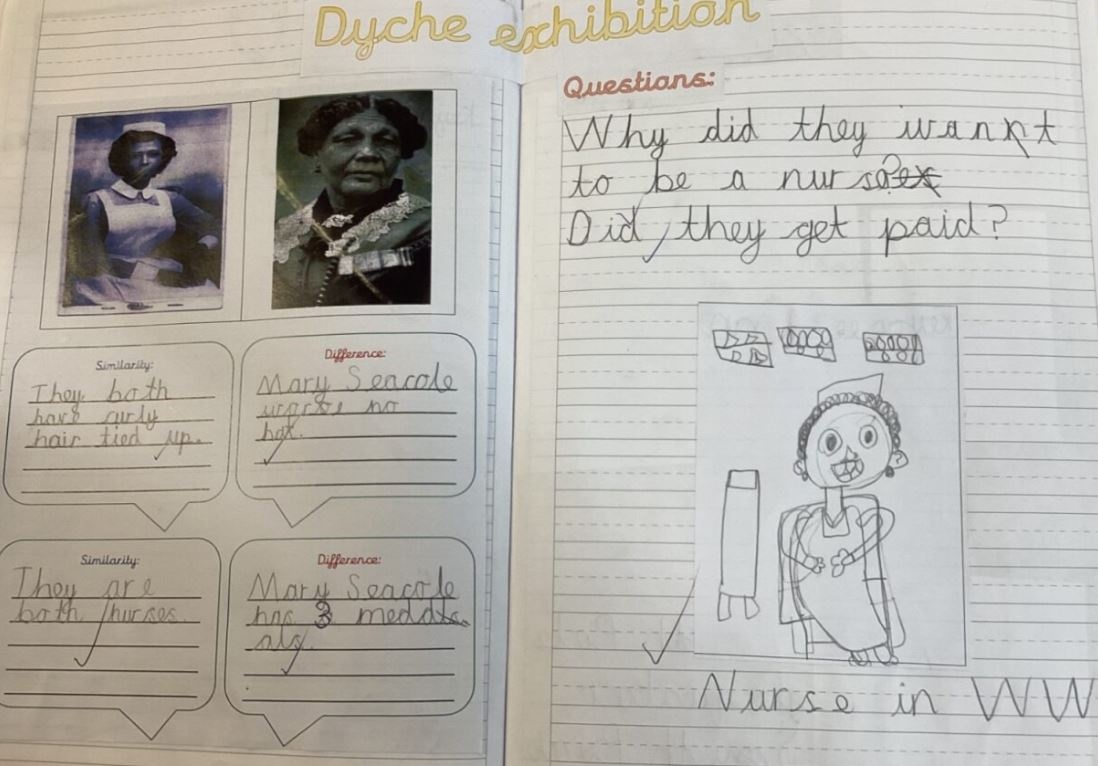 Dyche exhibition
Similarity:
They both
have curly
hair tied up.
Difference:
Mary Seacole
no
hat.
Similarity:
They are
both nurses.
Difference:
Mary Seacole
has 3
als.
Questions:
Why did they want
to be a nurse?
Did they get paid?
Nurse in WW